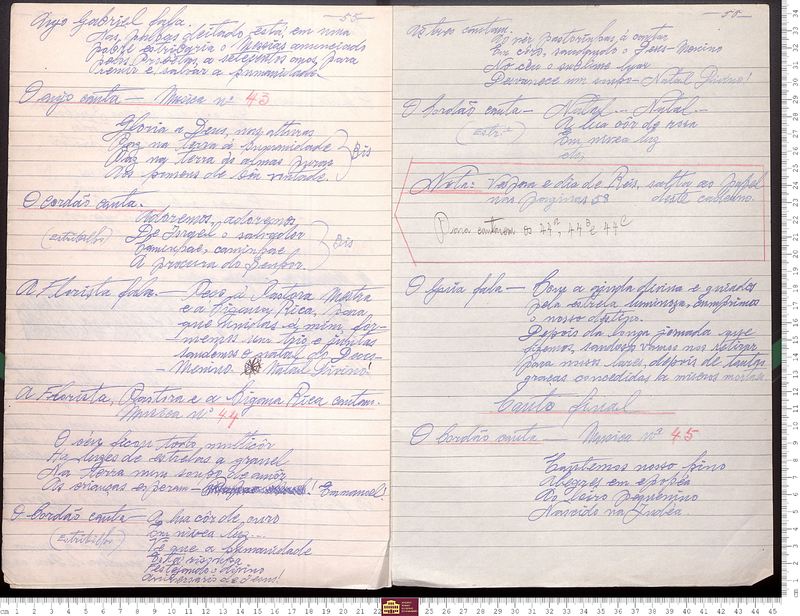 -55-
Anjo Gabriel fala.
Nas palhas deitado está, em uma
pobre estribaria o Messias anunciado
pelos profetas, a setecentos anos, para
remir e salvar a humanidade.
O anjo canta — Musica nº 43
Gloria a Deus, nas alturas
Paz na terra á humanidade
Paz na terra ás almas puras
Aos homens de bôa vontade.
Bis
O Cordão canta.
(estribilho)
Adoremos, adoremos
De Israel o salvador
Caminhae, caminhae
Á procura do Senhor.
Bis
A Florista fala — Peço á Pastora Mestra
e a Cigana Rica, para
que unidas a mim, for-
memos um trio e juntas
saudemos o natal do Deus-
- Menino. Natal Divino!
A Florista, Pastora e a Cigana Rica cantam.
Musica nº 44
O céu ficou todo multicôr
As luzes de estrelas a granel
Na terra num sonho de amôr
As crianças esperam — ! Emmanuel!
O Cordão canta — A lua côr de ouro
(Estribilho)
Em nivea luz...
Vê que a humanidade
Está risonha
Festejando o divino
Aniversario de Jesus!
-55-
As tres cantam.
E nós pastorinhas á cantar
Em côro, saudando o Deus-Menino
No céu o sublime luar
Desvanece um sonho — Natal Divino!
O Cordão canta — Natal... Natal...
(Estri.)
A lua côr de rosa
Em nivea luz
etc,
Nota: Véspera e dia de Reis, saltar ao papel
nas paginas 58 deste caderno.
Para cantarem os 44A, 44B e 44C
O Guia fala — Boye a ginda divina e guiados
pela estrela luminoza, cumprimos
o nosso destino.
Depois da longa jornada que
fizemos, saudosos vamos nos retirar
para nossos lares, depois de tantas
graças concedidas a miseros mortais.
Canto final
O Cordão canta — Musica nº 45
Cantemos nosso hino
Alegres em epopéa
Ao loiro pequenino
Nascido na Judéa.